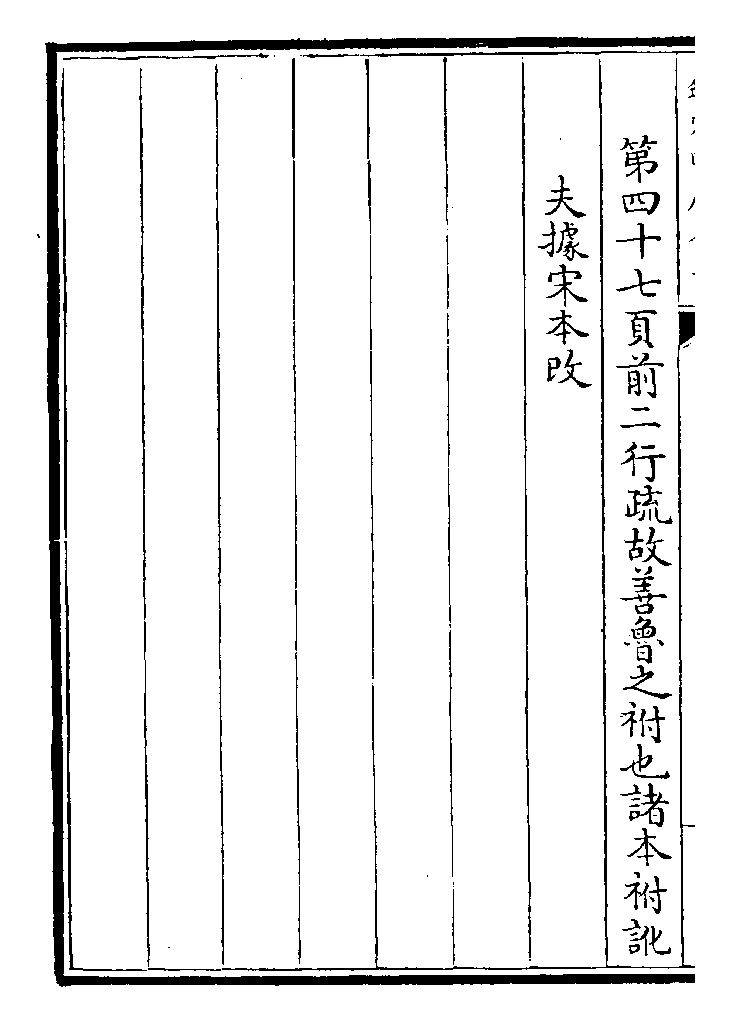 第四十七頁前二行疏故善魯之祔也諸本祔訛
夫據宋本改